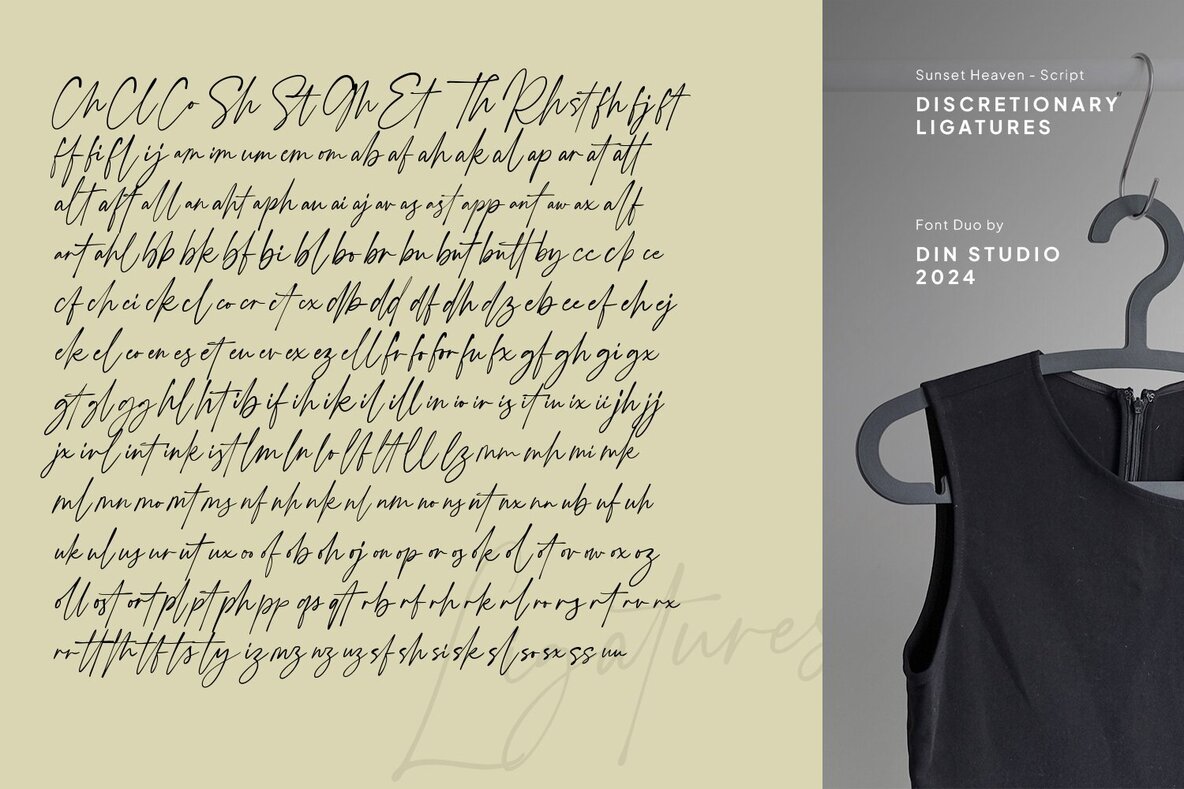 Ch Cl Co Sh St Gh Et Th Rh st fh fj ft
ff fi fl ij am im um em om ab af ah ak al ap ar at att
alt aft all an aht aph au ai aj av as ast app ant aw ax alf
art ahl bb bk bf bi bl bo br bu but butt by cc cb ce
cf ch ci ck cl co cr ct cx db dd df dh dz eb ee ef eh ej
ek el eo en es et eu ev ex ez ell fr fo for fu fx gf gh gi gx
gt gl gg hl ht ib if ih ik il ill in io ir is it iu ix ii jh jj
jx irl int ink ist lm ln lo lf lt ll lz mm mh mi mk
ml mn mo mt ms nf nh nk nl nm no ns nt nx nn ub uf uh
uk ul us ur ut ux oo of ob oh oj on op or os ok ol ot ov ow ox oz
oll ost ort pl pt ph pp qs qt rb rf rh rk rl ro rs rt rv rx
rr tt th tf ts ty iz mz nz uz sf sh si sk sl so sx ss uu
Ligatures
Sunset Heaven - Script
DISCRETIONARY
LIGATURES
Font Duo by
DIN STUDIO
2024